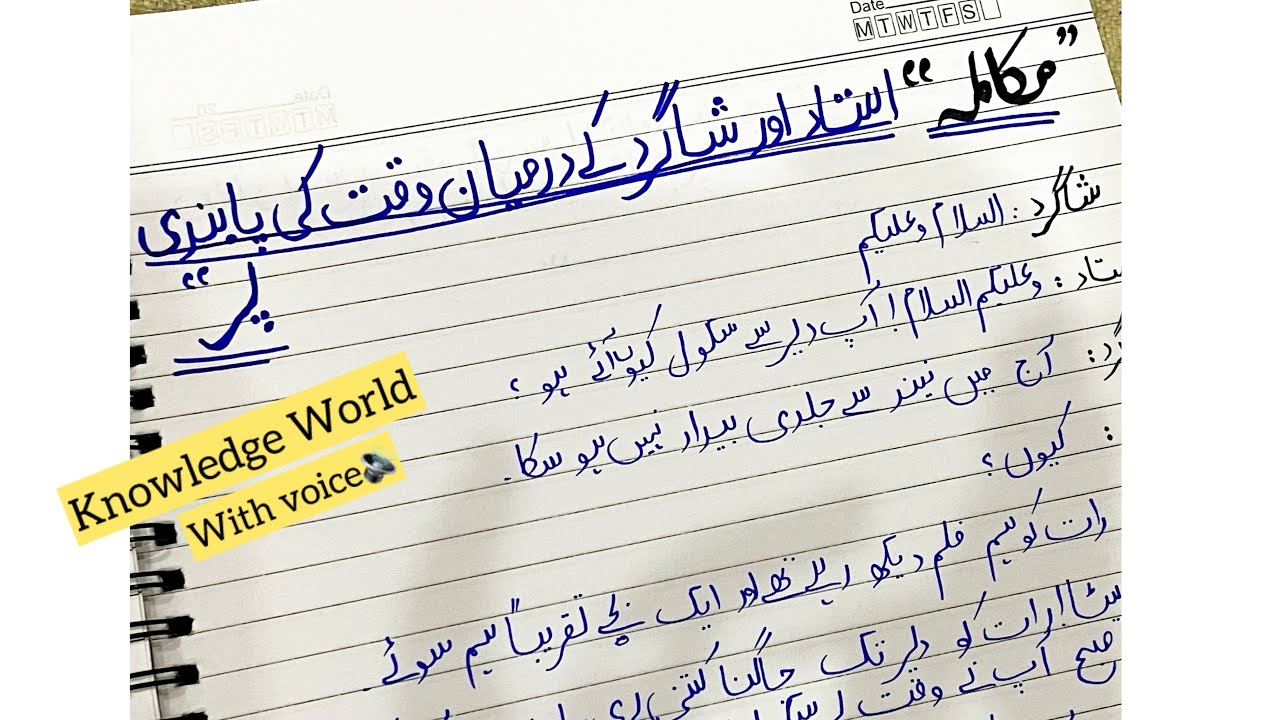 Date
M T W T F S
”مکالمہ“
استاد اور شاگرد کے درمیان وقت کی پابندی
پر“
شاگرد: السلام و علیکم
ستاد: وعلیکم السلام! آپ دیر سے سکول کیوں آئے ہو؟
گرد: آج میں نیند سے جلدی بیدار نہیں ہو سکا۔
: کیوں؟
رات کو ہم فلم دیکھ رہے تھے اور ایک بجے تقریباً ہم سوئے۔
بیٹا! رات کو دیر تک جاگنا کتنی بری
صبح آپ نے وقت
Knowledge World
With voice🔊